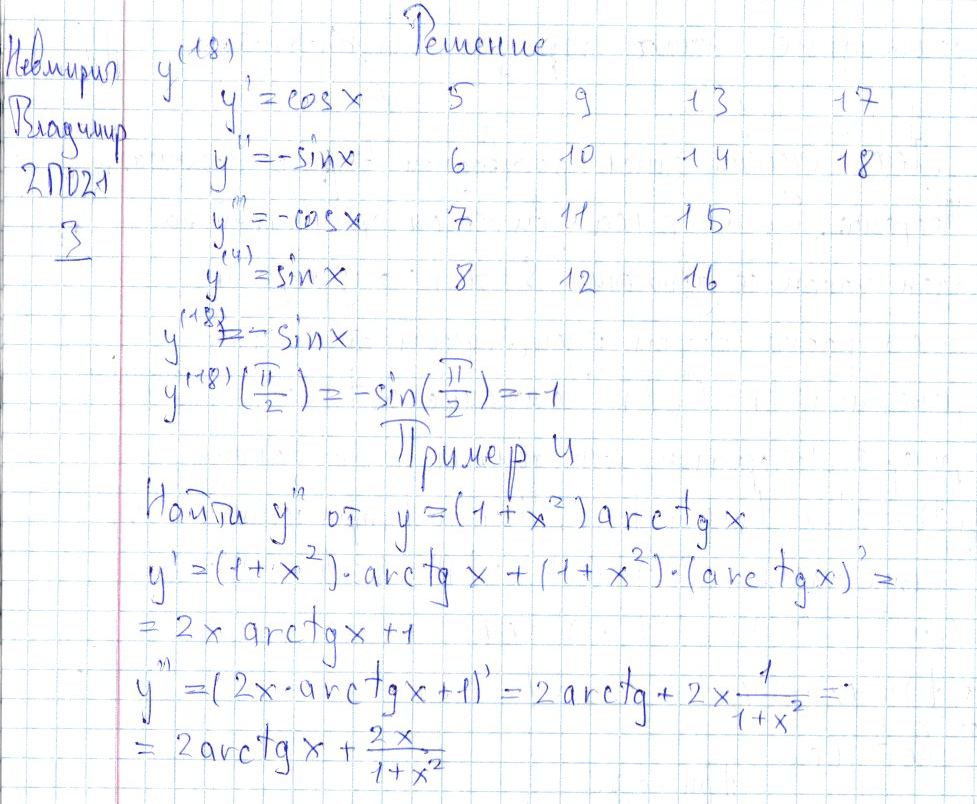 Решение
Владимир
2ПО21
3
y⁽¹⁸⁾
y' = cosx 5 9 13 17
y'' = -sinx 6 10 14 18
y''' = -cosx 7 11 15
y⁽⁴⁾ = sinx 8 12 16
y⁽¹⁸⁾ = - sinx
y⁽¹⁸⁾(π/2) = -sin(π/2) = -1
Пример 4
Найти y'' от y = (1+x²) arctg x
y' = (1+x²)·arctg x + (1+x²)·(arctgx)' =
= 2x arctgx +1
y''' = (2x·arctgx+1)' = 2arctg + 2x 1/(1+x²) =
= 2arctg x + 2x/(1+x²)